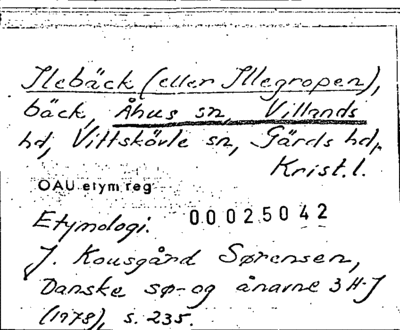 Ilebäck (eller Illegropen),
bäck, Åhus sn, Villands
hd, Vittskövle sn, Gärds hd,
Krist. l.
OAU etym reg
Etymologi. 00025042
J. Kousgård Sørensen,
Danske sø- og ånavne 3 H-J
(1978), s. 235.